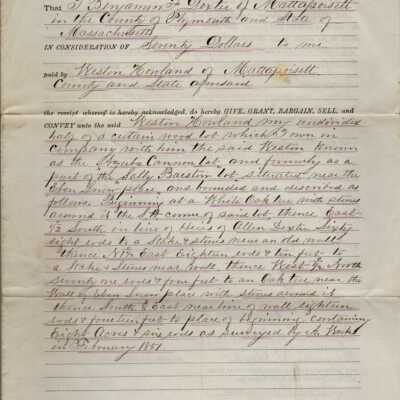 That I Benjamin F. Dexter of Mattapoisett
in the County of Plymouth and State of
Massachusetts
IN CONSIDERATION OF Seventy Dollars to me
paid by Weston Howland of Mattapoisett
County and State aforesaid
the receipt whereof is hereby acknowledged, do hereby GIVE, GRANT, BARGAIN, SELL, and
CONVEY unto the said Weston Howland my undivided
half of a certain wood lot which I own in
company with him the said Weston known
as the Cannon lot and formerly as a
part of the Sally Barstow lot, situated near the
Eben place and bounded and described as
follows Beginning at a White Oak tree with stones
around it the S.W. corner of said lot, thence East
South on line of Heirs of Allen Dexter Sixty
eight rods to a Stake & stones near an old wall
thence East Eighteen rods & ten feet to
a Stake & Stones near wall thence West 1/2 North
seventy one rods & four feet to an Oak tree near the
Wall of Eben place with stones around it
thence South East near line of wall Eighteen
rods & fourteen feet to place of beginning, containing
Eight Acres & six rods as surveyed by
in February 1851